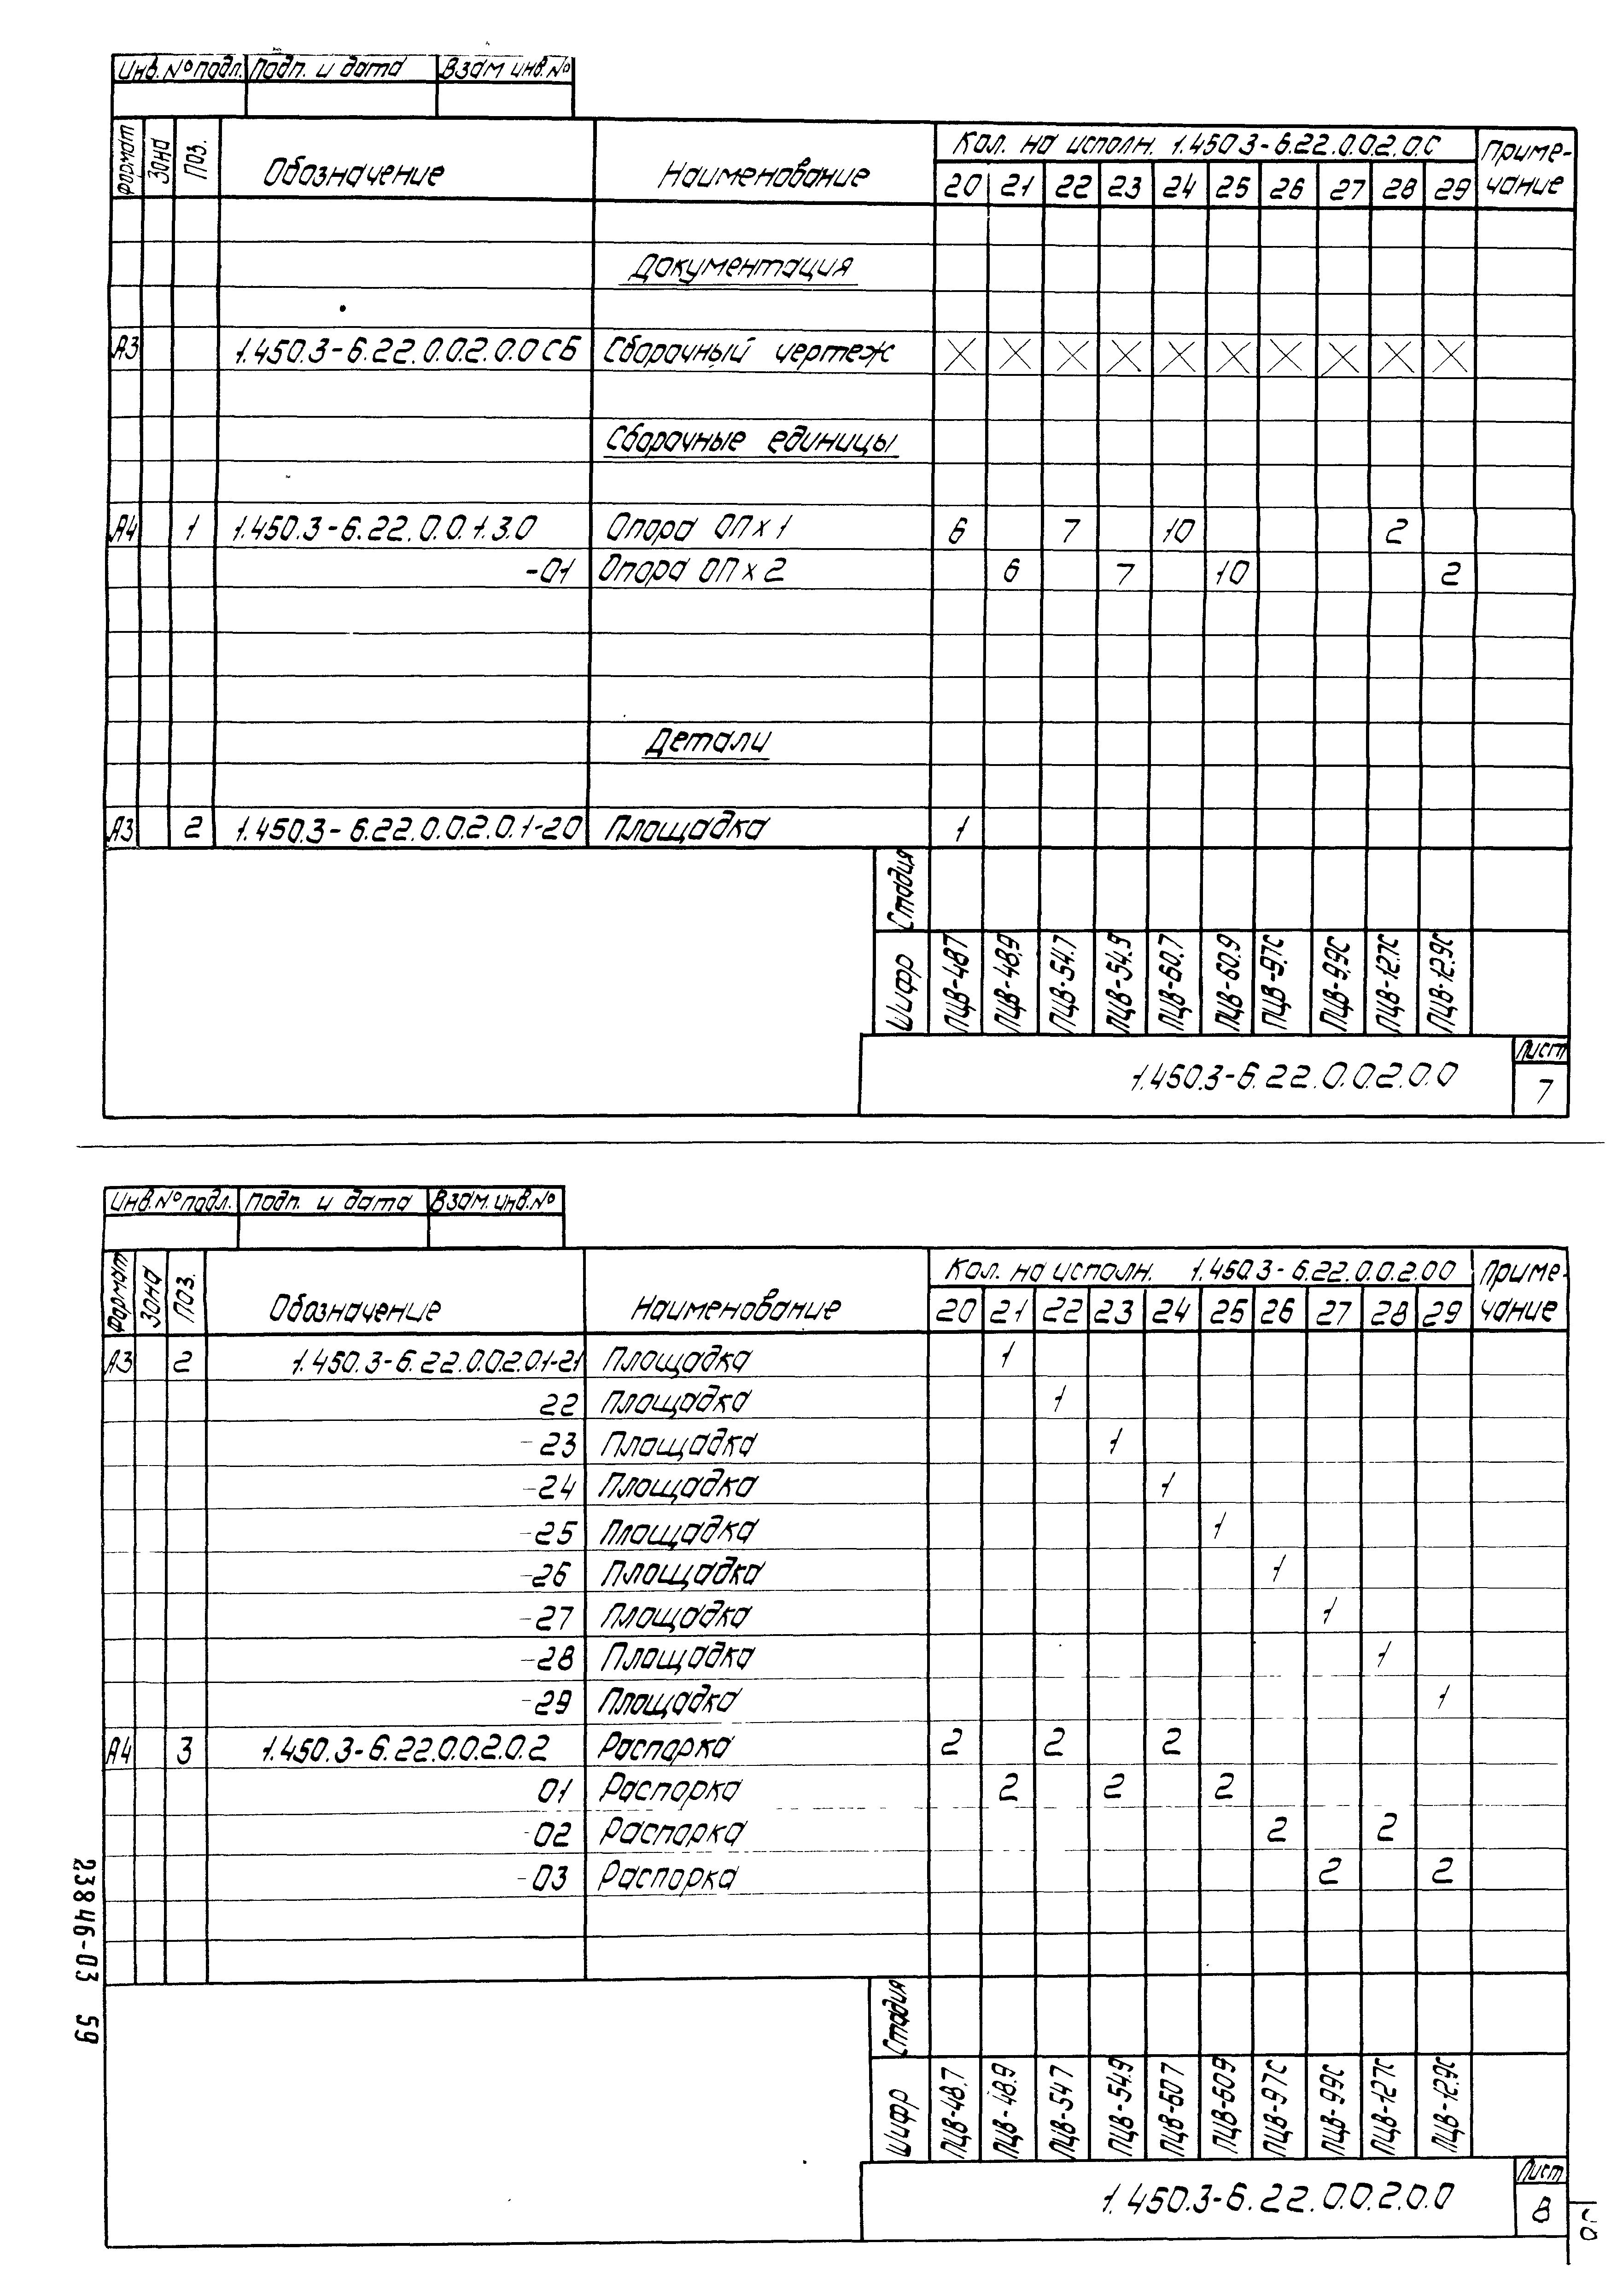 Инв.№ подл. Подп. и дата Взам инв.№
Формат Зона Поз. Обозначение Наименование Кол. на исполн. 1.450.3-6.22.0.0.2.0.С Приме-
20 21 22 23 24 25 26 27 28 29 чание
Документация
А3 1.450.3-6.22.0.0.2.0.0СБ Сборочный чертеж X X X X X X X X X X
Сборочные единицы
А4 1 1.450.3-6.22.0.0.1.3.0 Опора ОПх1 6 7 10 2
-01 Опора ОПх2 6 7 10 2
Детали
А3 2 1.450.3-6.22.0.0.2.0.1-20 Площадка 1
Стадия
Шифр ПЦВ-48.7 ПЦВ-48.9 ПЦВ-54.7 ПЦВ-54.9 ПЦВ-60.7 ПЦВ-60.9 ПЦВ-9.7С ПЦВ-9.9С ПЦВ-12.7С ПЦВ-12.9С
1.450.3-6.22.0.0.2.0.0
Лист
7
Инв.№ подл. Подп. и дата Взам. инв.№
Формат Зона Поз. Обозначение Наименование Кол. на исполн. 1.450.3-6.22.0.0.2.00 Приме-
20 21 22 23 24 25 26 27 28 29 чание
А3 2 1.450.3-6.22.0.0.2.0.1-21 Площадка 1
22 Площадка 1
-23 Площадка 1
-24 Площадка 1
-25 Площадка 1
-26 Площадка 1
-27 Площадка 1
-28 Площадка 1
-29 Площадка 1
А4 3 1.450.3-6.22.0.0.2.0.2 Распорка 2 2 2
01 Распорка 2 2 2
-02 Распорка 2 2
-03 Распорка 2 2
Стадия
Шифр ПЦВ-48.7 ПЦВ-48.9 ПЦВ-54 7 ПЦВ-54.9 ПЦВ-60 7 ПЦВ-60 9 ПЦВ-97С ПЦВ-99С ПЦВ-127С ПЦВ-12.9С
1.450.3-6.22.0.0.2.0.0
Лист
8
23846-03 59